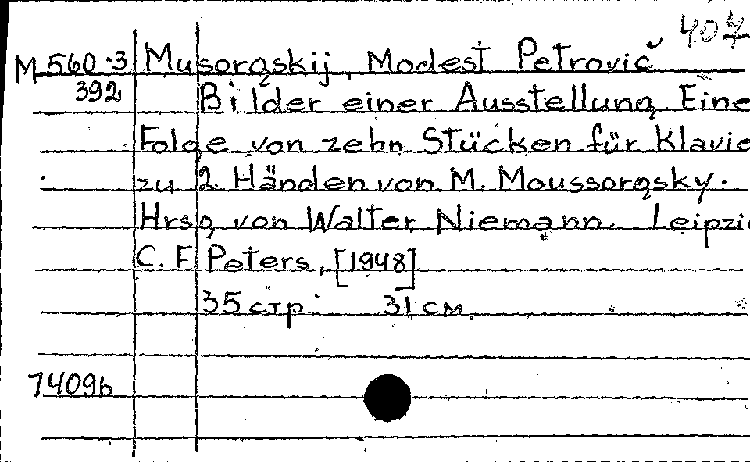 407
M 560-3 Musorgskij, Modest Petrovič
392 Bilder einer Ausstellung. Eine
Folge von zehn Stücken für Klavie
zu 2 Händen von M. Moussorgsky.
Hrsg von Walter Niemann. Leipzi
C. F. Peters, [1948]
35 стр. 31 см.